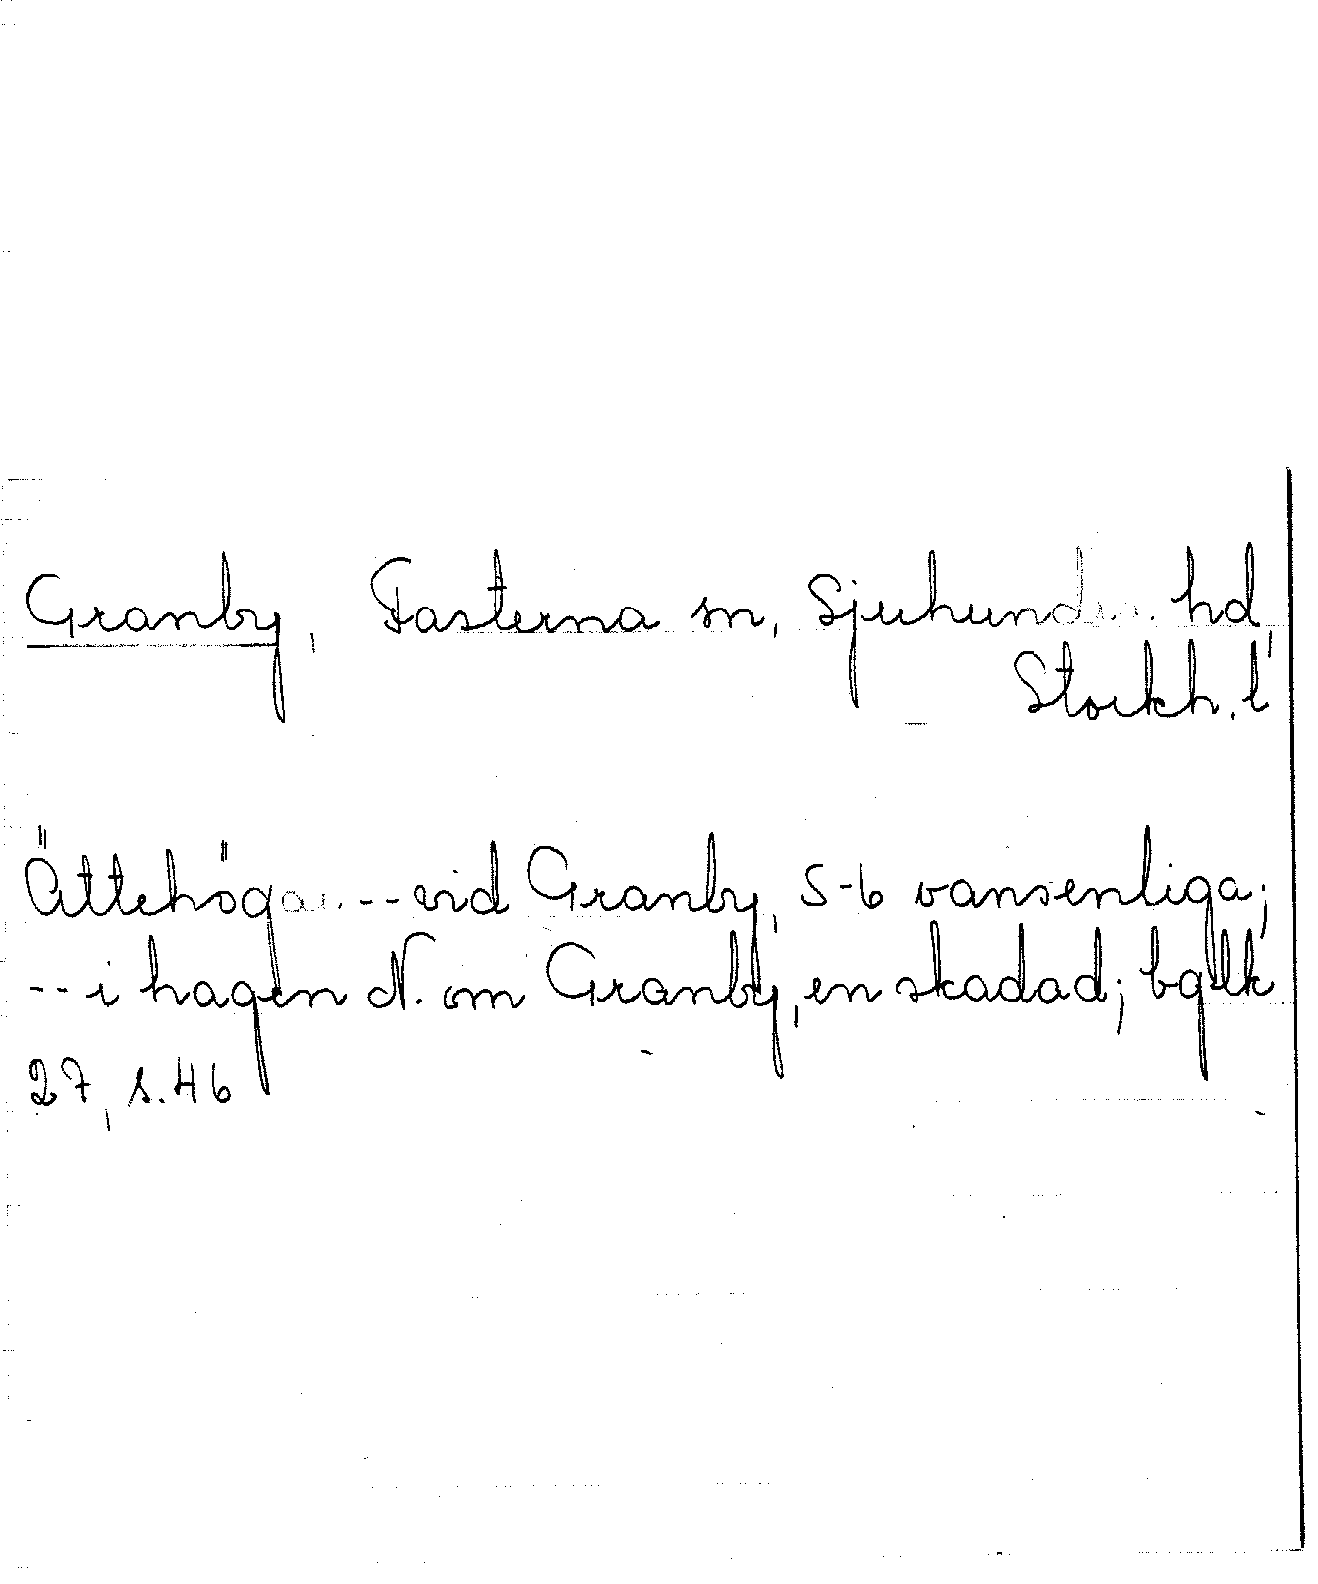 Granby, Fasterna sn, Sjuhundra hd,
Stockh. l
Ättehögar -- vid Granby, 5-6 vansenliga;
-- i hagen N. om Granby, en skadad; bglk
27, s. 46